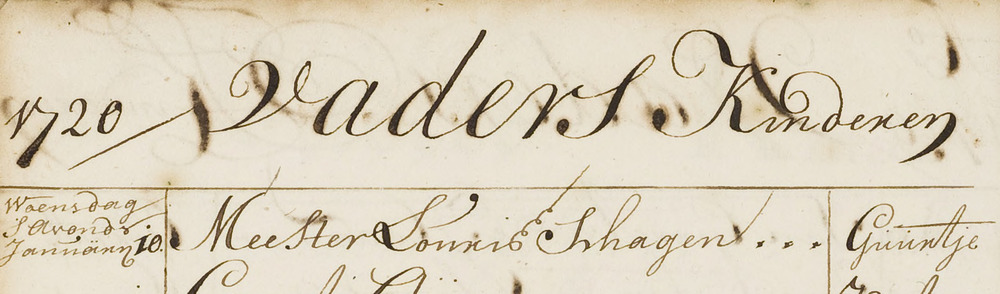 1720 / Vaders Kinderen
Woensdag
S'Avonds
Januarÿ 10. Meester Louris Schagen ... Guurtje